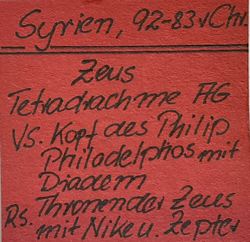 Syrien, 92-83 v Chr.
Zeus
Tetradrachme AG
VS. Kopf des Philip
Philadelphos mit
Diadem
Rs. Thronender Zeus
mit Nike u. Zepter